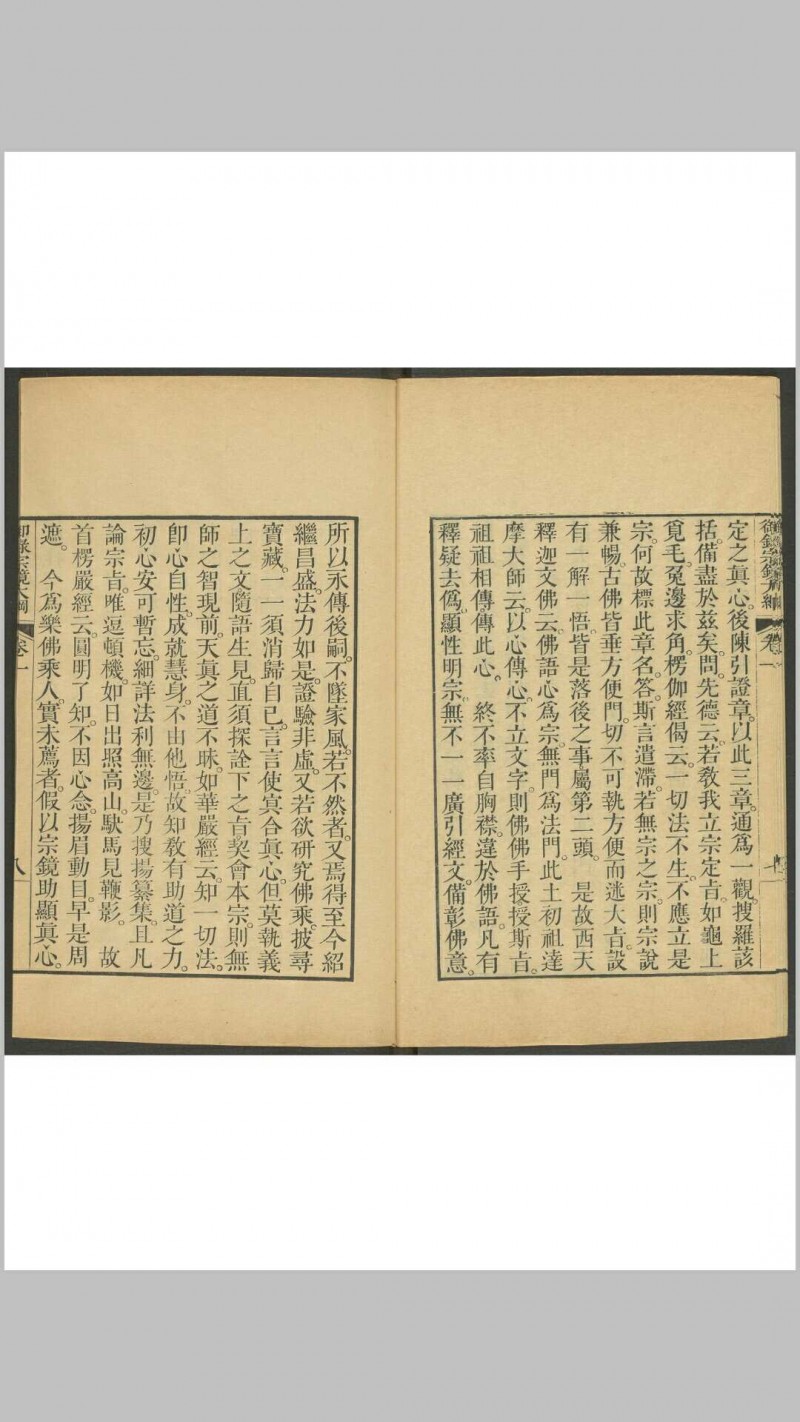 御錄宗鏡大綱 卷一 七
定之眞心後陳引證章以此三章通爲一觀搜羅該
括備盡於茲矣。問。先德云。若教我立宗定㫖。如龜上
覓毛。兔邊求角。楞伽經偈云。一切法不生。不應立是
宗。何故標此章名。答。斯言遣滯。若無宗之宗。則宗說
兼暢。古佛皆垂方便門。切不可執方便而迷大㫖。設
有一解一悟。皆是落後之事。屬第二頭。 是故西天
釋迦文佛云。佛語心爲宗。無門爲法門。此土初祖達
摩大師云。以心傳心。不立文字。則佛佛手授授斯㫖。
祖祖相傳傳此心。 終不率自胸襟。違於佛語。凡有
釋疑去僞。顯性明宗。無不一一廣引經文。備彰佛意。
所以永傳後嗣。不墜家風。若不然者。又焉得至今紹
繼昌盛。法力如是。證驗非虛。又若欲硏究佛乘。披尋
寶藏。一一須消歸自己。言言使㝠合眞心。但莫執義
上之文。隨語生見。直須探詮下之㫖。契會本宗。則無
師之智現前。天眞之道不昧。如華嚴經云。知一切法。
卽心自性。成就慧身。不由他悟。故知敎有助道之力。
初心安可暫忘。細詳法利無邊。是乃搜揚纂集。且凡
論宗㫖。唯逗頓機。如日出照高山。駃馬見鞭影。 故
首楞嚴經云。圓明了知。不因心念。揚眉動目。早是周
遮。 今爲樂佛乘人。實未薦者。假以宗鏡。助顯眞心。
御錄宗鏡大綱 卷一 八